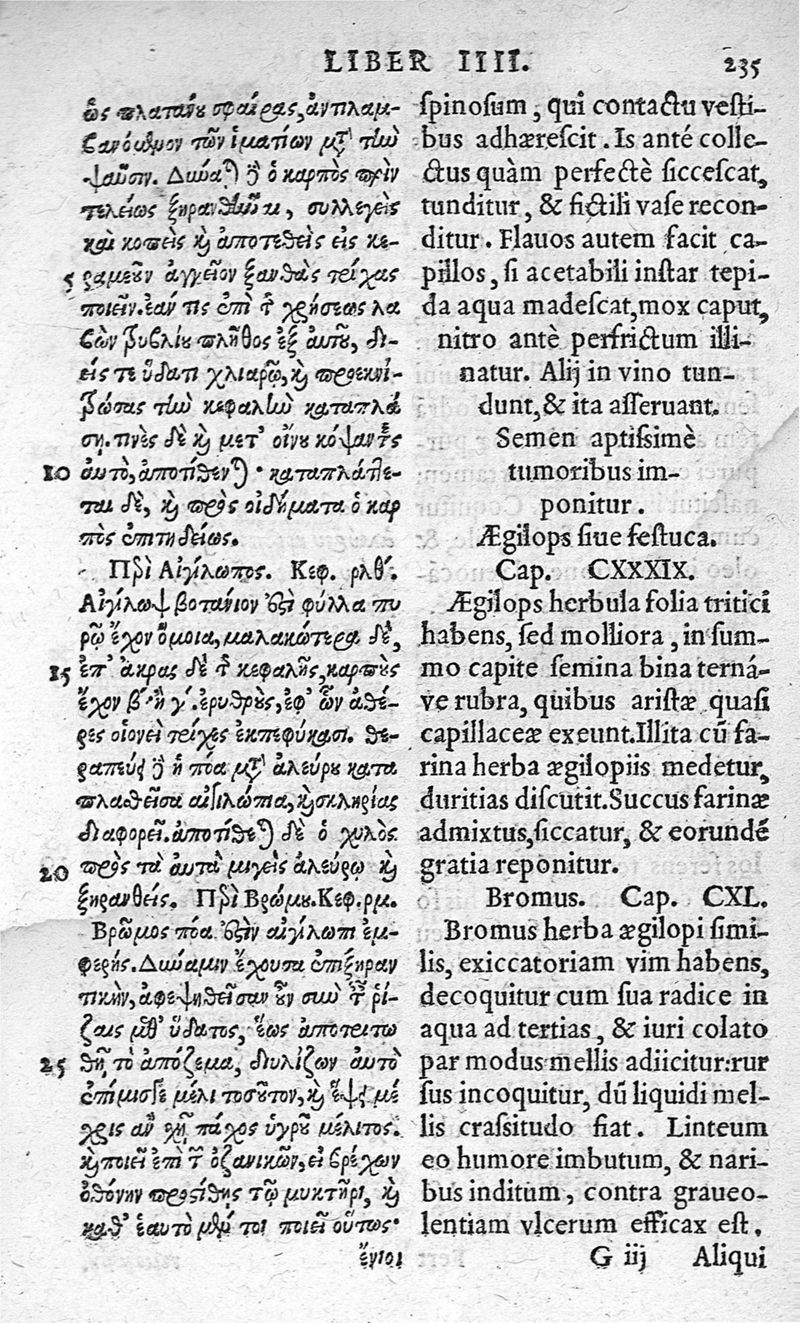 LIBER IIII. 235
ὡς πλατάνου σφαίρας, ἀντιλαμ-
βανόμενον τῶν ἱματίων μετὰ τὴν
ψαῦσιν. Δύναται δὲ ὁ καρπὸς πρὶν
τελείως ξηρανθῆναι, συλλεγεὶς
καὶ κοπεὶς καὶ ἀποτεθεὶς εἰς κε-
5 ραμεοῦν ἀγγεῖον ξανθὰς τρίχας
ποιεῖν. ἐάν τις ἐπὶ τῆς χρήσεως λα
βὼν πλῆθος ἐξ αὐτοῦ, δι-
εὶς τε ὕδατι χλιαρῷ, καὶ προεκνι-
τρώσας τὴν κεφαλὴν καταπλά
σῃ. τινὲς δὲ καὶ μετ' οἴνου κόψαντες
10 αὐτὸ, ἀποτίθενται· καταπλάττε-
ται δὲ, καὶ πρὸς οἰδήματα ὁ καρ
πὸς ἐπιτηδείως.
Περὶ Αἰγίλωπος. Κεφ. ρλθʹ.
Αἰγίλωψ βοτάνιον ἐστὶ φύλλα πυ
ρῷ ἔχον ὅμοια, μαλακώτερα δὲ,
15 ἐπ' ἄκρας δὲ τῆς κεφαλῆς, καρποὺς
ἔχον βʹ. ἢ γʹ. ἐρυθροὺς, ἐφ' ὧν ἀθέ-
ρες οἱονεὶ τρίχες ἐκπεφύκασι. θε-
ραπεύει δὲ ἡ πόα μετὰ ἀλεύρου κατα
πλασθεῖσα αἰγιλώπια, καὶ σκληρίας
διαφορεῖ. ἀποτίθεται δὲ ὁ χυλὸς
20 πρὸς τὰ αὐτὰ μιγεὶς ἀλεύρῳ καὶ
ξηρανθείς. Περὶ Βρώμου. Κεφ. ρμ.
Βρῶμος πόα ἐστὶν αἰγίλωπι ἐμ-
φερής. Δύναμιν ἔχουσα ἐπιξηραν
τικὴν, ἀφεψηθεῖσαν οὖν σὺν ταῖς ῥί-
ζαις μεθ' ὕδατος, ἕως ἀποτριτω
25 θῇ τὸ ἀπόζεμα, διυλίζων αὐτὸ
ἐπίμισγε μέλι τοσοῦτον, καὶ ἕψει μέ
χρις ἂν σχῇ πάχος ὑγροῦ μέλιτος.
καὶ ποιεῖ ἐπὶ τῶν ὀζαινικῶν, εἰ βρέχων
ὀθόνην προστίθης τῷ μυκτῆρι, καὶ
καθ' ἑαυτὸ μέν τοι ποιεῖ οὕτως·
ἔνιοι
spinosum, qui contactu vesti-
bus adhærescit. Is anté colle-
ctus quàm perfectè siccescat,
tunditur, & fictili vase recon-
ditur. Flauos autem facit ca-
pillos, si acetabili instar tepi-
da aqua madescat, mox caput,
nitro antè perfrictum illi-
natur. Alij in vino tun-
dunt, & ita asseruant.
Semen aptissimè
tumoribus im-
ponitur.
Ægilops siue festuca.
Cap. CXXXIX.
Ægilops herbula folia tritici
habens, sed molliora, in sum-
mo capite semina bina terná-
ve rubra, quibus aristæ quasi
capillaceæ exeunt. Illita cũ fa-
rina herba ægilopiis medetur,
duritias discutit. Succus farinæ
admixtus, siccatur, & eorundẽ
gratia reponitur.
Bromus. Cap. CXL.
Bromus herba ægilopi simi-
lis, exiccatoriam vim habens,
decoquitur cum sua radice in
aqua ad tertias, & iuri colato
par modus mellis adiicitur: rur
sus incoquitur, dũ liquidi mel-
lis crassitudo fiat. Linteum
eo humore imbutum, & nari-
bus inditum, contra graueo-
lentiam vlcerum efficax est.
G iij Aliqui